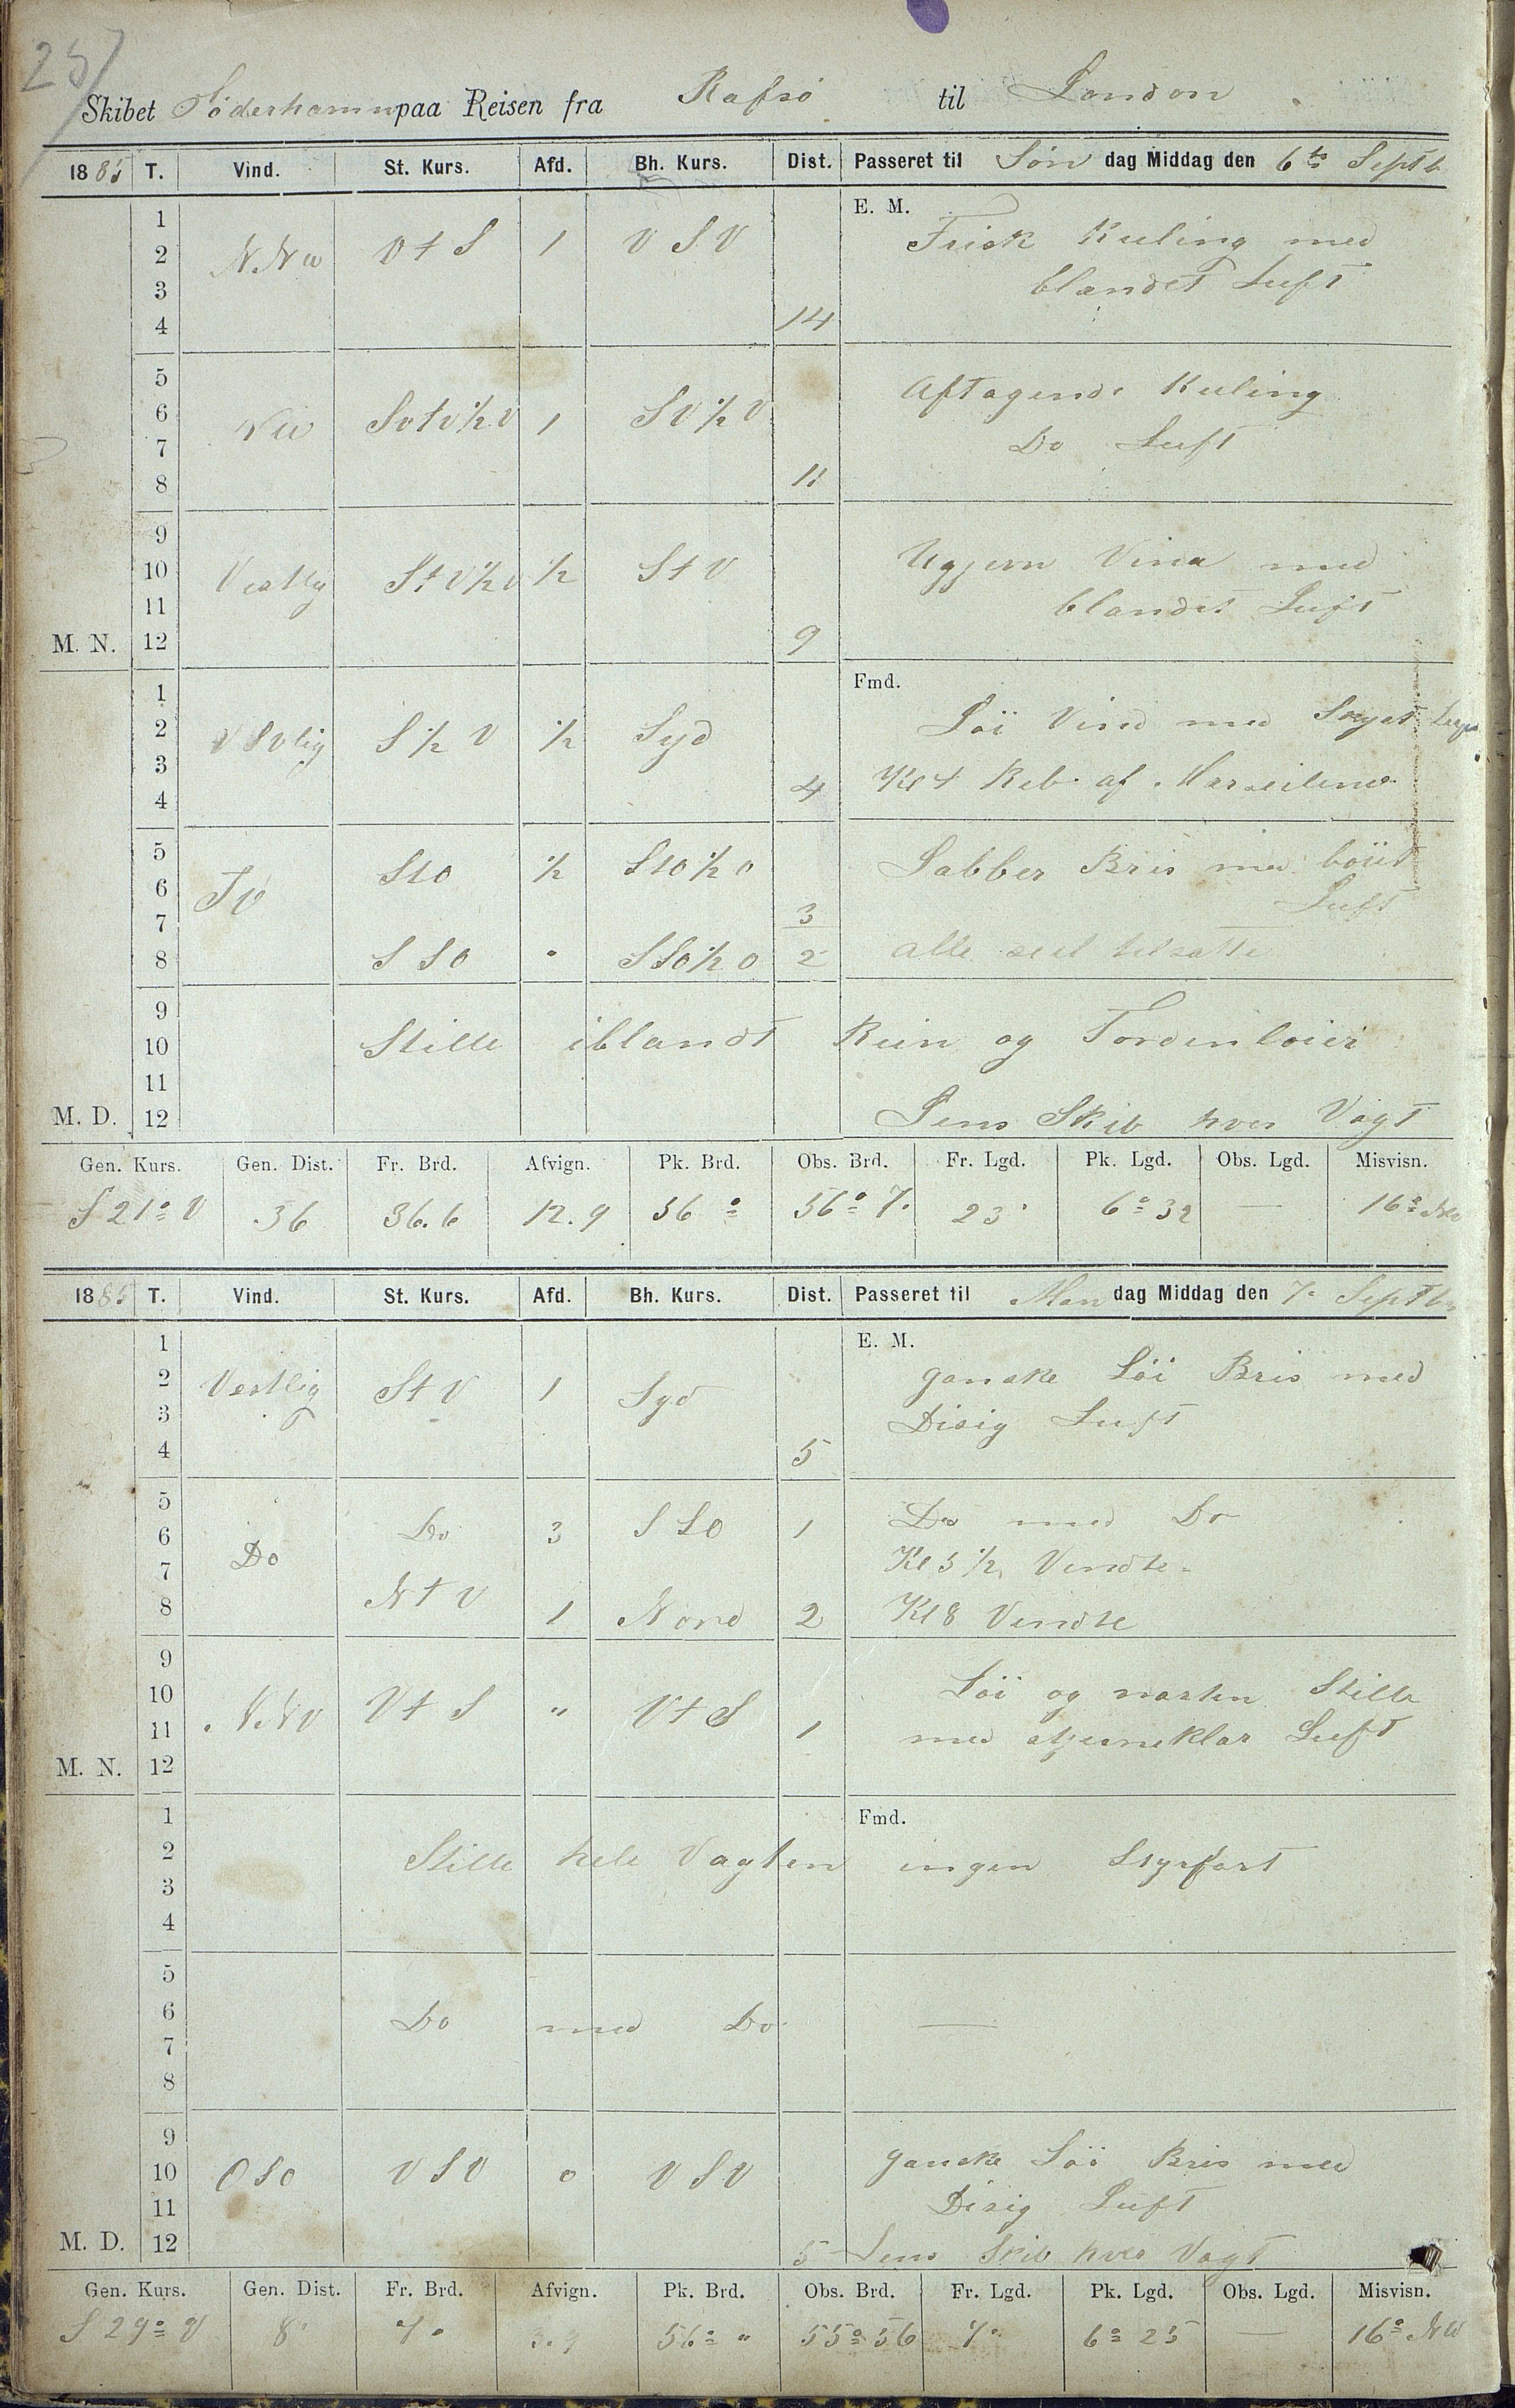 257
Skibet Söderhamn paa Reisen fra Rafsö til London
1885 T. Vind. St. Kurs. Afd. Bh. Kurs. Dist. Passeret til Søn dag Middag den 6te Septb
E. M.
1
2 N.Nw V t S 1 V S V Frisk Kuling med
3 blandet Luft
4 14
5 Aftagende Kuling
6 Nw Svtv½V 1 SV½V
7 Do Luft
8 11
9
10 Vestlig StV½V ½ St V Ugjevn Vind med
11 blandet Luft
M. N. 12 9
Fmd.
1
2 VSVlig S½V ½ Syd Löi Vind med
3
4 4 Kl 4 Reb af Merseilene
5 StO ½ StO½O Labber Bris med böiet
6 Luft
7 3
8 S S O " SSO½O 2 alle seil tilsatte
9
10 Stille iblandt Rein og Tordenloier
11
M. D. 12 Lens Skib hver Vagt
Gen. Kurs. Gen. Dist. Fr. Brd. Afvign. Pk. Brd. Obs. Brd. Fr. Lgd. Pk. Lgd. Obs. Lgd. Misvisn.
S 21° V 36 36.6 12.9 56° 56° 7' 23' 6° 32 — 16° NW
1885 T. Vind. St. Kurs. Afd. Bh. Kurs. Dist. Passeret til Man dag Middag den 7. Septbr
E. M.
1
2 Vestlig St V 1 Syd ganske Löi Bris med
3 Disig Luft
4 5
5 Do 3 S S O 1 Do med Do
6 Do
7 Kl 5½ Vendte
8 N t V 1 Nord 2 Kl 8 Vendte
9
10 N.NV V t S " V t S Löi og nasten Stille
11 1 med stjerneklar Luft
M. N. 12
Fmd.
1
2 Stille hele Vagten ingen Styrfart
3
4
5
6 Do med Do —
7
8
9
10 O S O V S V 0 V S V ganske Löi Bris med
11 Disig Luft
M. D. 12 5 Lens Skib hver Vagt
Gen. Kurs. Gen. Dist. Fr. Brd. Afvign. Pk. Brd. Obs. Brd. Fr. Lgd. Pk. Lgd. Obs. Lgd. Misvisn.
S 29° V 8' 7' 3.9 56° " 55° 56 7' 6° 25 — 16° NW